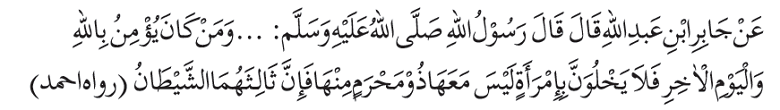 عَنْ جَابِرِ ابْنِ عَبدِ اللهِ قَالَ قَالَ رَسُوْلُ اللهِ صَلَّى اللهُ عَلَيْهِ وَسَلَّم: ...وَمَنْ كَانَ يُؤْمِنُ بِاللهِ
وَالْيَوْمِ الْاٰخِرِ فَلاَ يَخْلُوَنَّ بِإِمْرَأَةٍ لَيْسَ مَعَهَا ذُوْمَحْرَمٍ مِنْهَا فَإِنَّ ثَالِثَهُمَا الشَّيْطَانُ (رواه احمد)